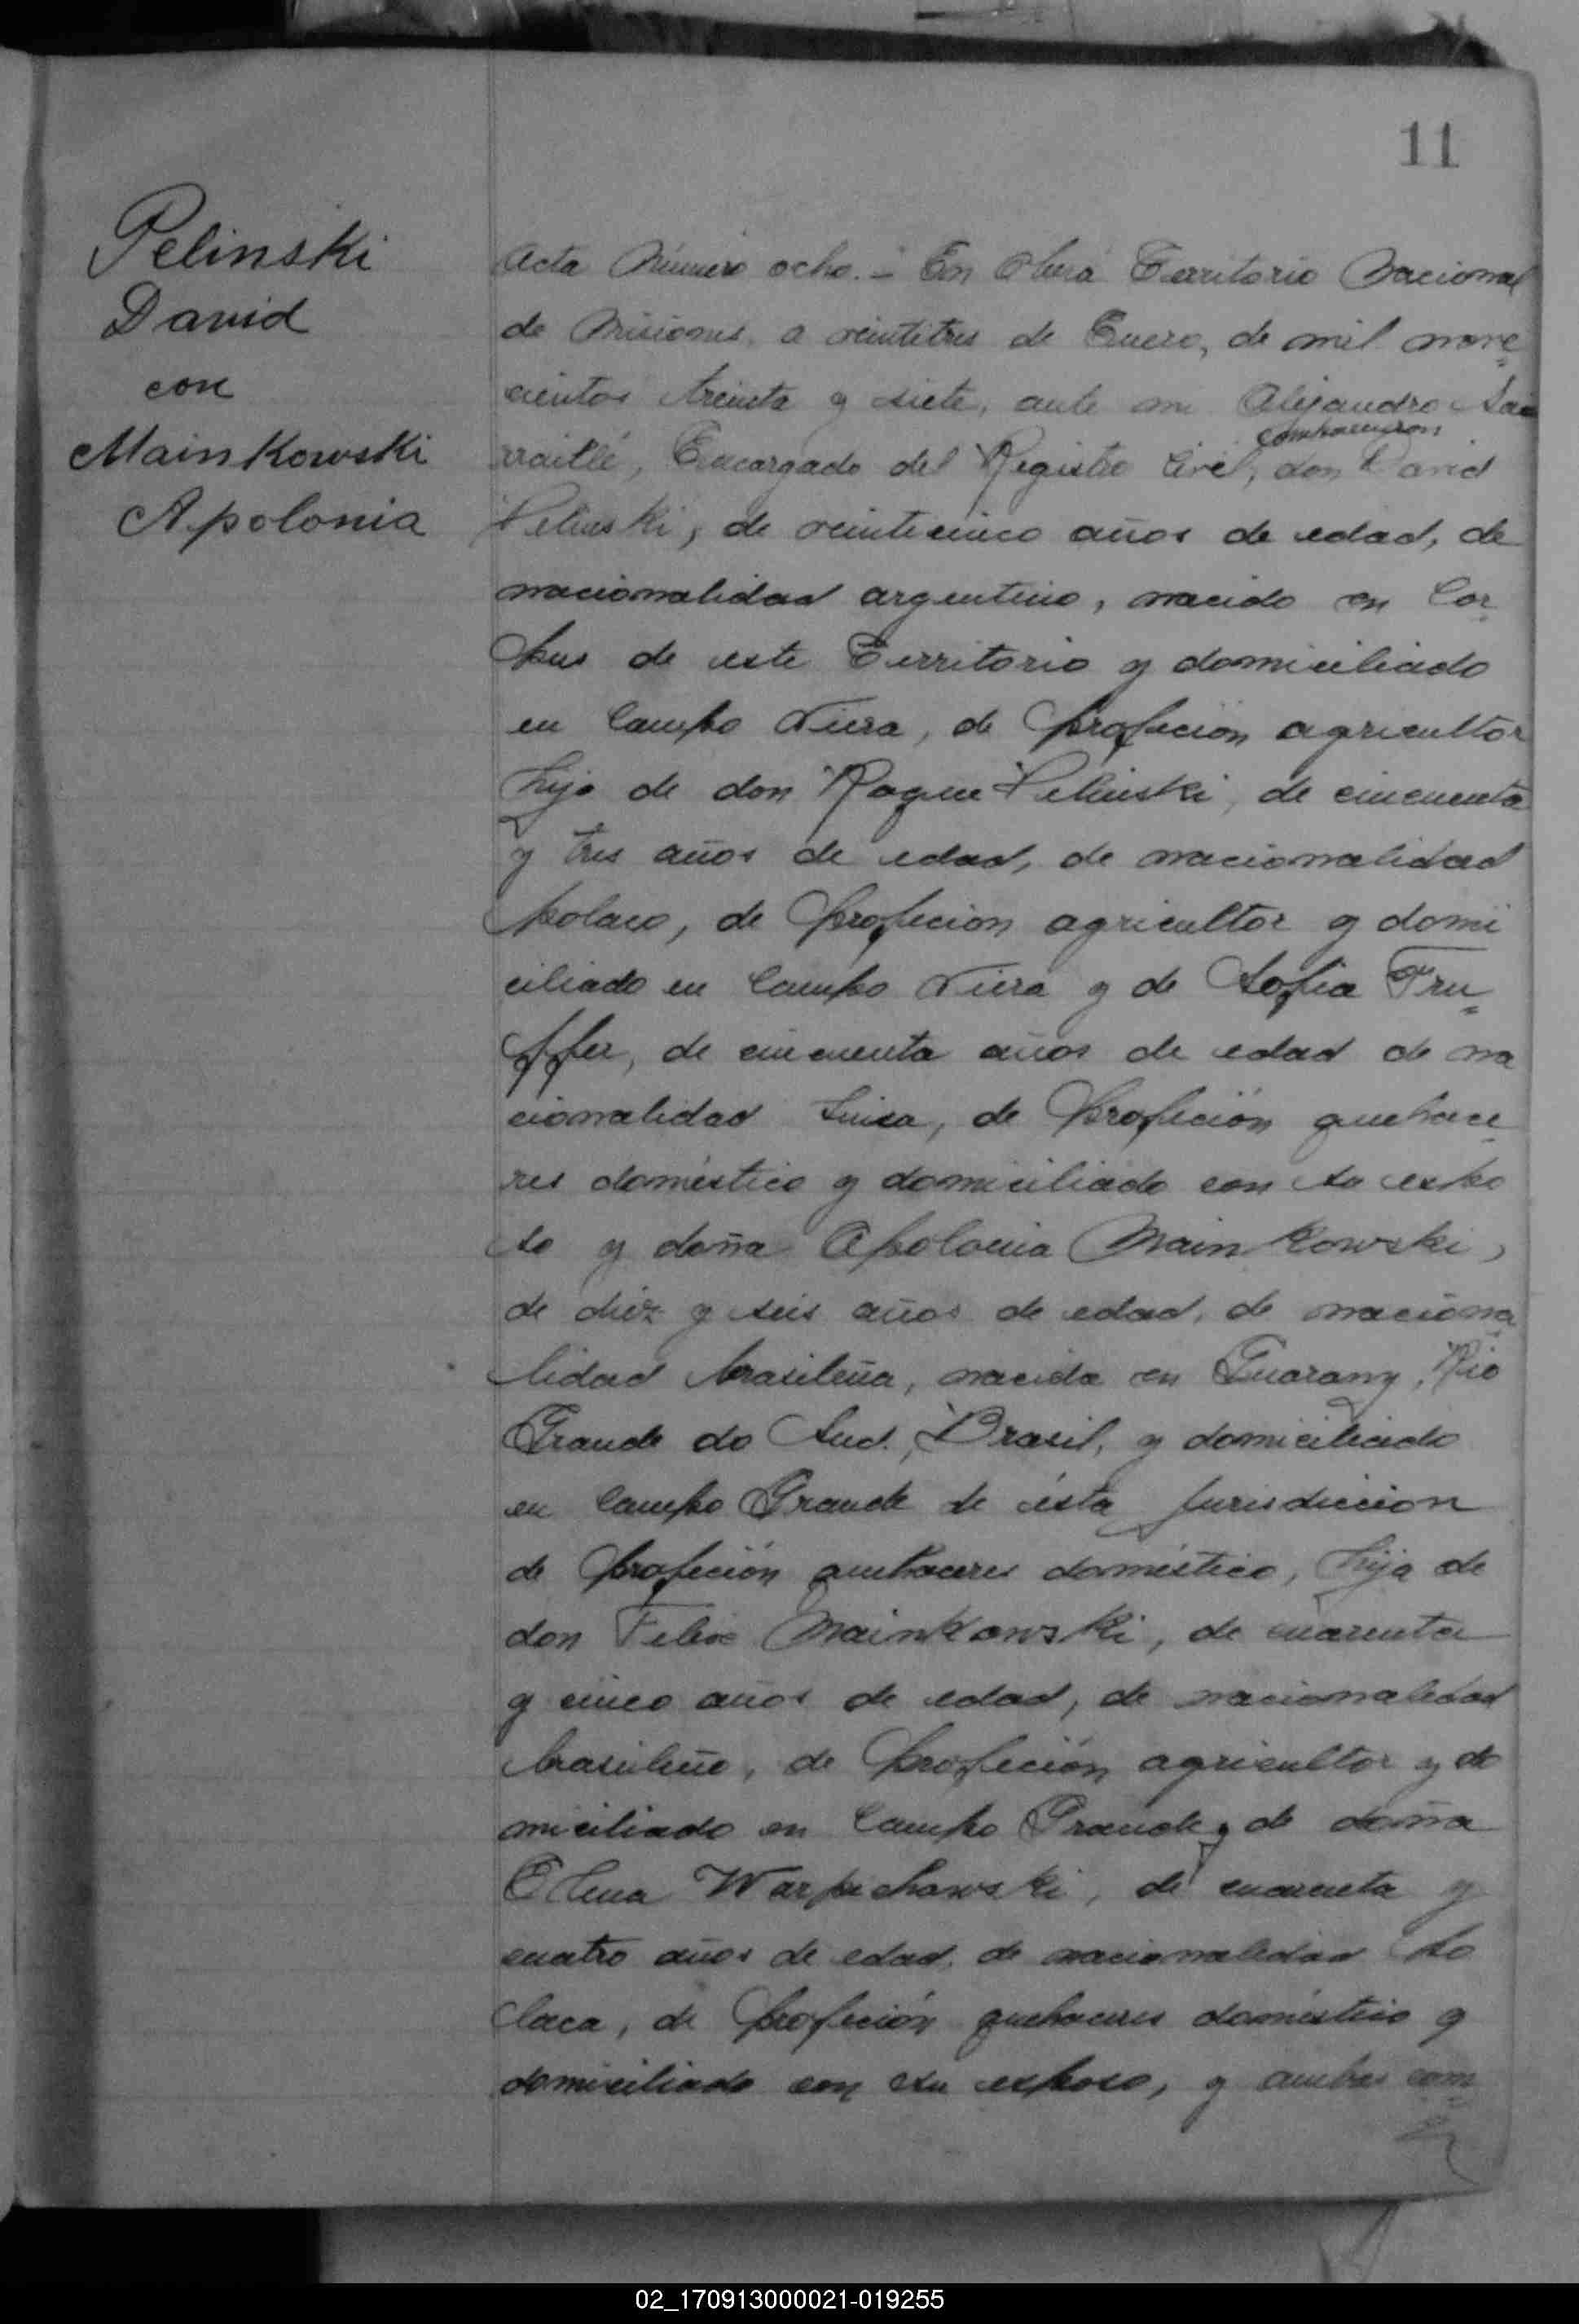 11
Pelinski
David
con
Mainkowski
Apolonia
Acta Número ocho. - En Oberá Territorio Nacional
de Misiones, a veintitres de Enero, de mil nove=
cientos treinta y siete, ante mi Alejandro
comparecieron
Encargado del Registro Civil, don David
Pelinski, de veinticinco años de edad, de
nacionalidad argentino, nacido en Cor=
pus de este Territorio y domiciliado
en Campo Viera, de profeción agricultor
hijo de don Roque Pelinski, de cincuenta
y tres años de edad, de nacionalidad
polaco, de profeción agricultor y domi
ciliado en Campo Viera y de Sofia Tru=
ffer, de cincuenta años de edad de na
cionalidad Suisa, de profeción quehace=
res doméstico y domiciliado con su espo
so y doña Apolonia Mainkowski,
de diez y seis años de edad, de naciona=
lidad brasileña, nacida en Guarany, Rio
Grande do Sud, Brasil, y domiciliado
en Campo Grande de ésta Jurisdiccion
de profeción quehaceres doméstico, hija de
don Felix Mainkowski, de cuarenta
y cinco años de edad, de nacionalidad
brasileño, de profeción agricultor y do
miciliado en Campo Grande y de doña
Elena Warpechowski, de cuarenta y
cuatro años de edad, de nacionalidad po
laca, de profeción quehaceres doméstico y
domiciliado con su esposo, y ambos com=
02_170913000021-019255